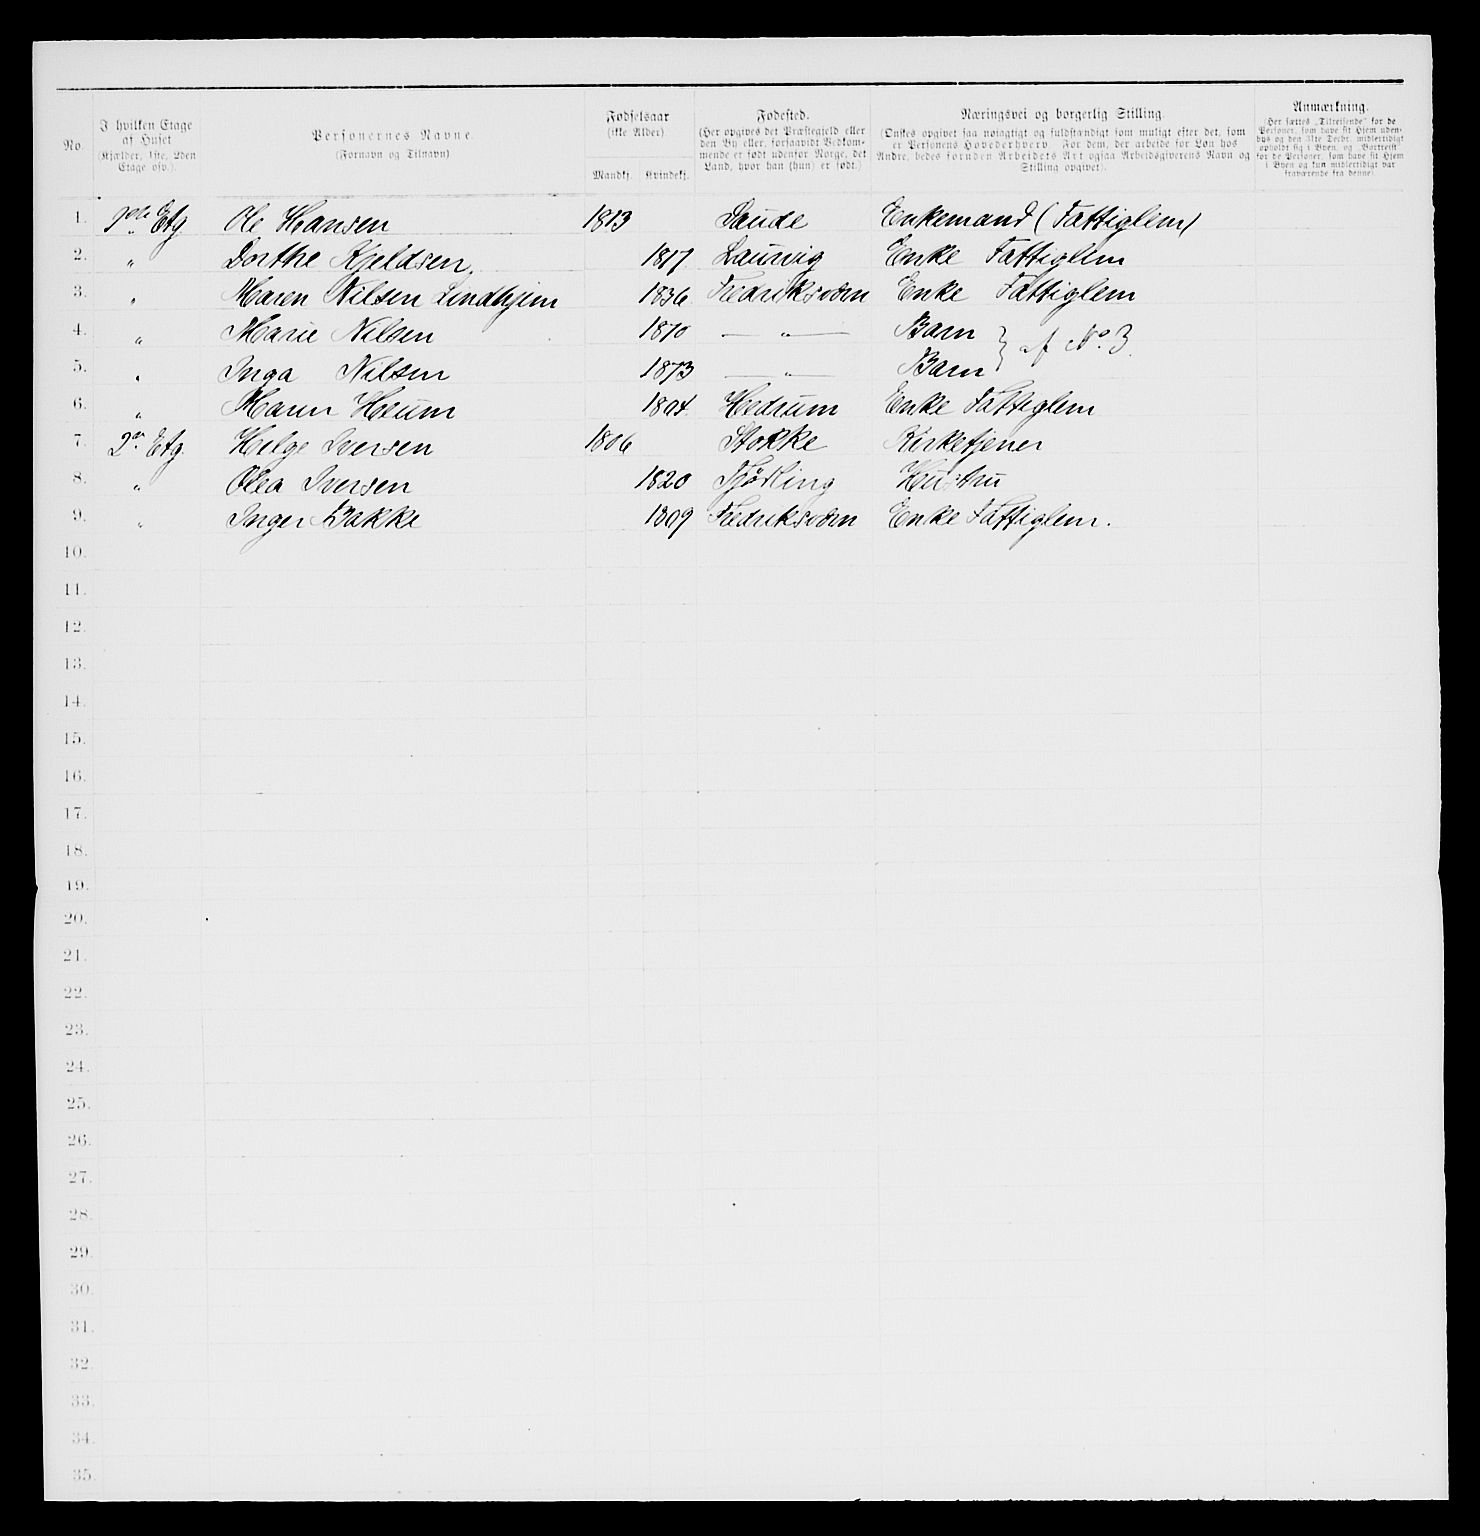 No.
I hvilken Etage
af Huset
(Kjælder, 1ste, 2den
Etage osv.).
Personernes Navne.
(Fornavn og Tilnavn)
Fødselsaar
(ikke Alder)
Mandkj. Kvindekj.
Fødested.
(Her opgives det Præstegjeld eller
den By eller, forsaavidt Vedkom-
mende er født udenfor Norge, det
Land, hvor han (hun) er født.)
Næringsvei og borgerlig Stilling.
(Ønskes opgivet saa nøiagtigt og fuldstændigt som muligt efter det, som
er Personens Hovederhverv. For dem, der arbeide for Løn hos
Andre, bedes foruden Arbeidets Art ogsaa Arbeidsgiverens Navn og
Stilling opgivet).
Anmærkning.
(Her sættes „Tilreisende" for de
Personer, som have sit Hjem uden-
bys og den 31te Decbr. midlertidigt
opholdt sig i Byen, og „Bortreist"
for de Personer, som have sit Hjem
i Byen og kun midlertidigt var
fraværende fra denne).
1. 1ste Etg Ole Hansen 1813 Saude Enkemand (Fattiglem)
2. " Dorthe Kjeldsen. 1817 Laurvig Enke Fattiglem
3. " Maren Nilsen Lindhjem 1836 Fredriksværn Enke Fattiglem
4. " Marie Nilsen 1870 — " — Barn } af No. 3.
5. " Inga Nilsen 1873 — " — Barn
6. " Maren Heum 1804 Hedrum Enke Fattiglem
7. 2en Etg. Helge Iversen 1806 Stokke Kirketjener
8. " Olea Iversen 1820 Tjødling Hustru
9. " Inger Bakke 1809 Fredriksværn Enke Fattiglem.
10.
11.
12.
13.
14.
15.
16.
17.
18.
19.
20.
21.
22.
23.
24.
25.
26.
27.
28.
29.
30.
31.
32.
33.
34.
35.